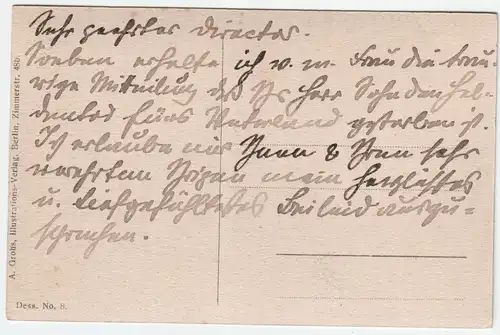 Sehr geehrter Director.
Soeben erhalte ich v. m. Frau die trau-
rige Mitteilung daß Ihr Herr Sohn den Hel-
dentod fürs Vaterland gestorben ist.
Ich erlaube mir Ihnen & Ihrer sehr
verehrten mein herzlichstes
u. tiefgefühltestes Beileid auszu-
sprechen.
A. Grohs, Illustrations-Verlag, Berlin, Zimmerstr. 48b.
Dess. No. 8.